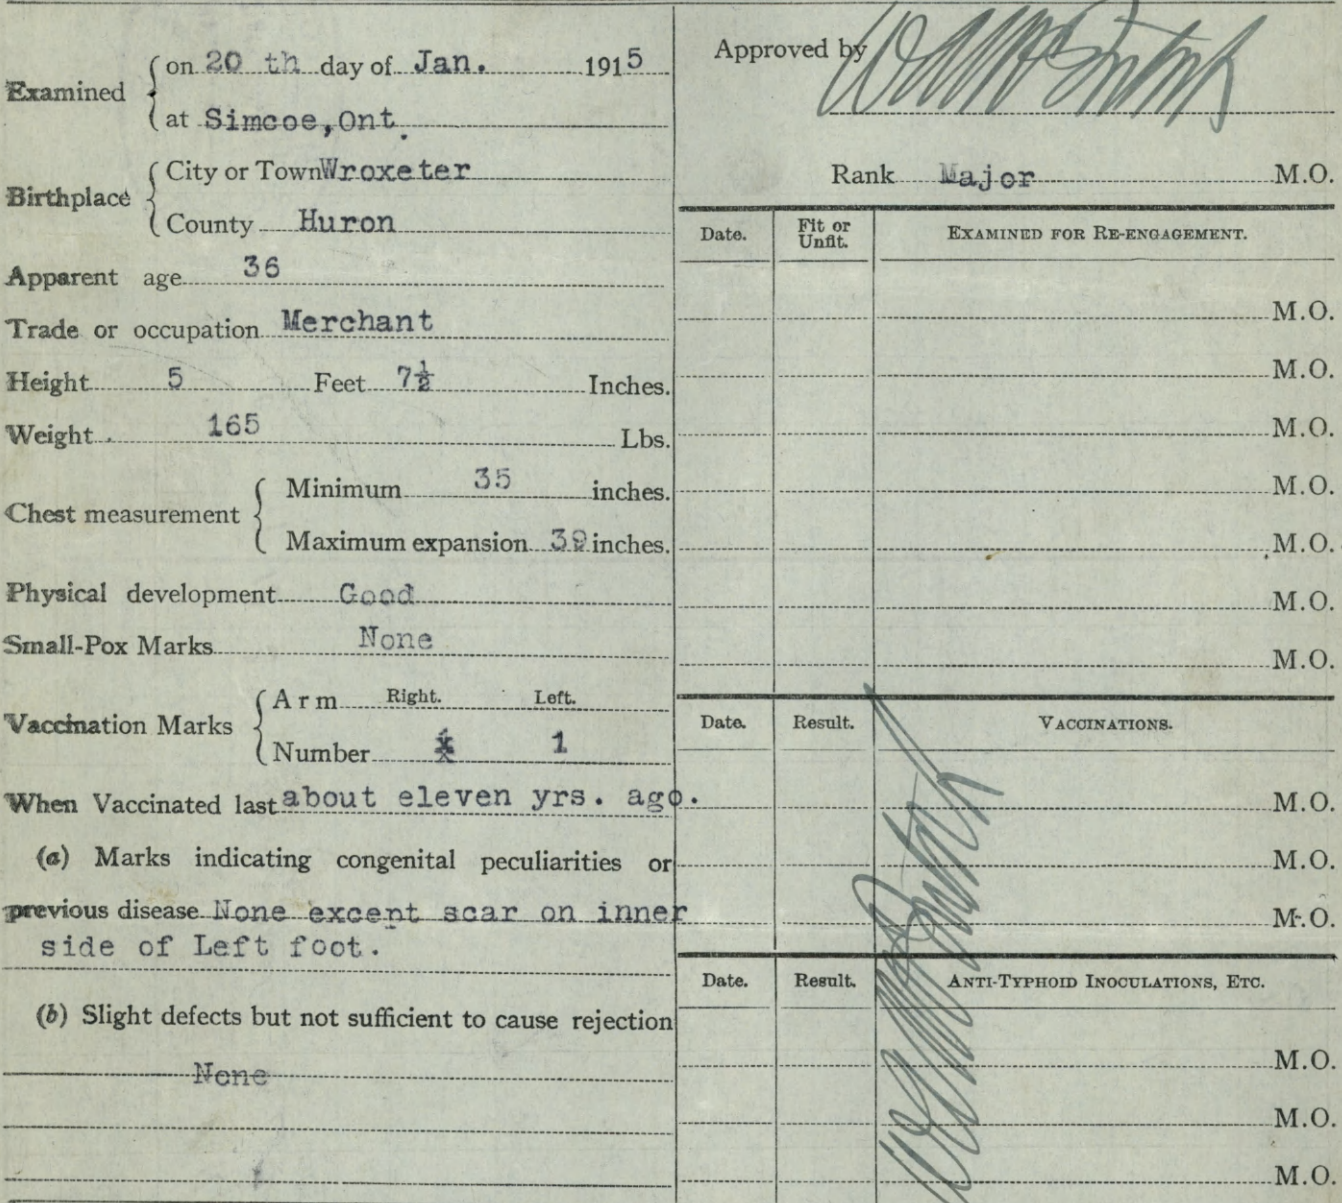 Examined on 20 th day of Jan. 1915
at Simcoe, Ont.
Birthplace City or Town Wroxeter
County Huron
Apparent age 36
Trade or occupation Merchant
Height 5 Feet 7½ Inches.
Weight 165 Lbs.
Chest measurement Minimum 35 inches.
Maximum expansion 39 inches.
Physical development Good
Small-Pox Marks None
Vaccination Marks Arm Right. Left.
Number 1
When Vaccinated last about eleven yrs. ago.
(a) Marks indicating congenital peculiarities or
previous disease None except scar on inner
side of Left foot.
(b) Slight defects but not sufficient to cause rejection
None
Approved by
Rank Major M.O.
Date. Fit or Unfit. EXAMINED FOR RE-ENGAGEMENT.
M.O.
M.O.
M.O.
M.O.
M.O.
M.O.
M.O.
Date. Result. VACCINATIONS.
M.O.
M.O.
M.O.
Date. Result. ANTI-TYPHOID INOCULATIONS, ETC.
M.O.
M.O.
M.O.